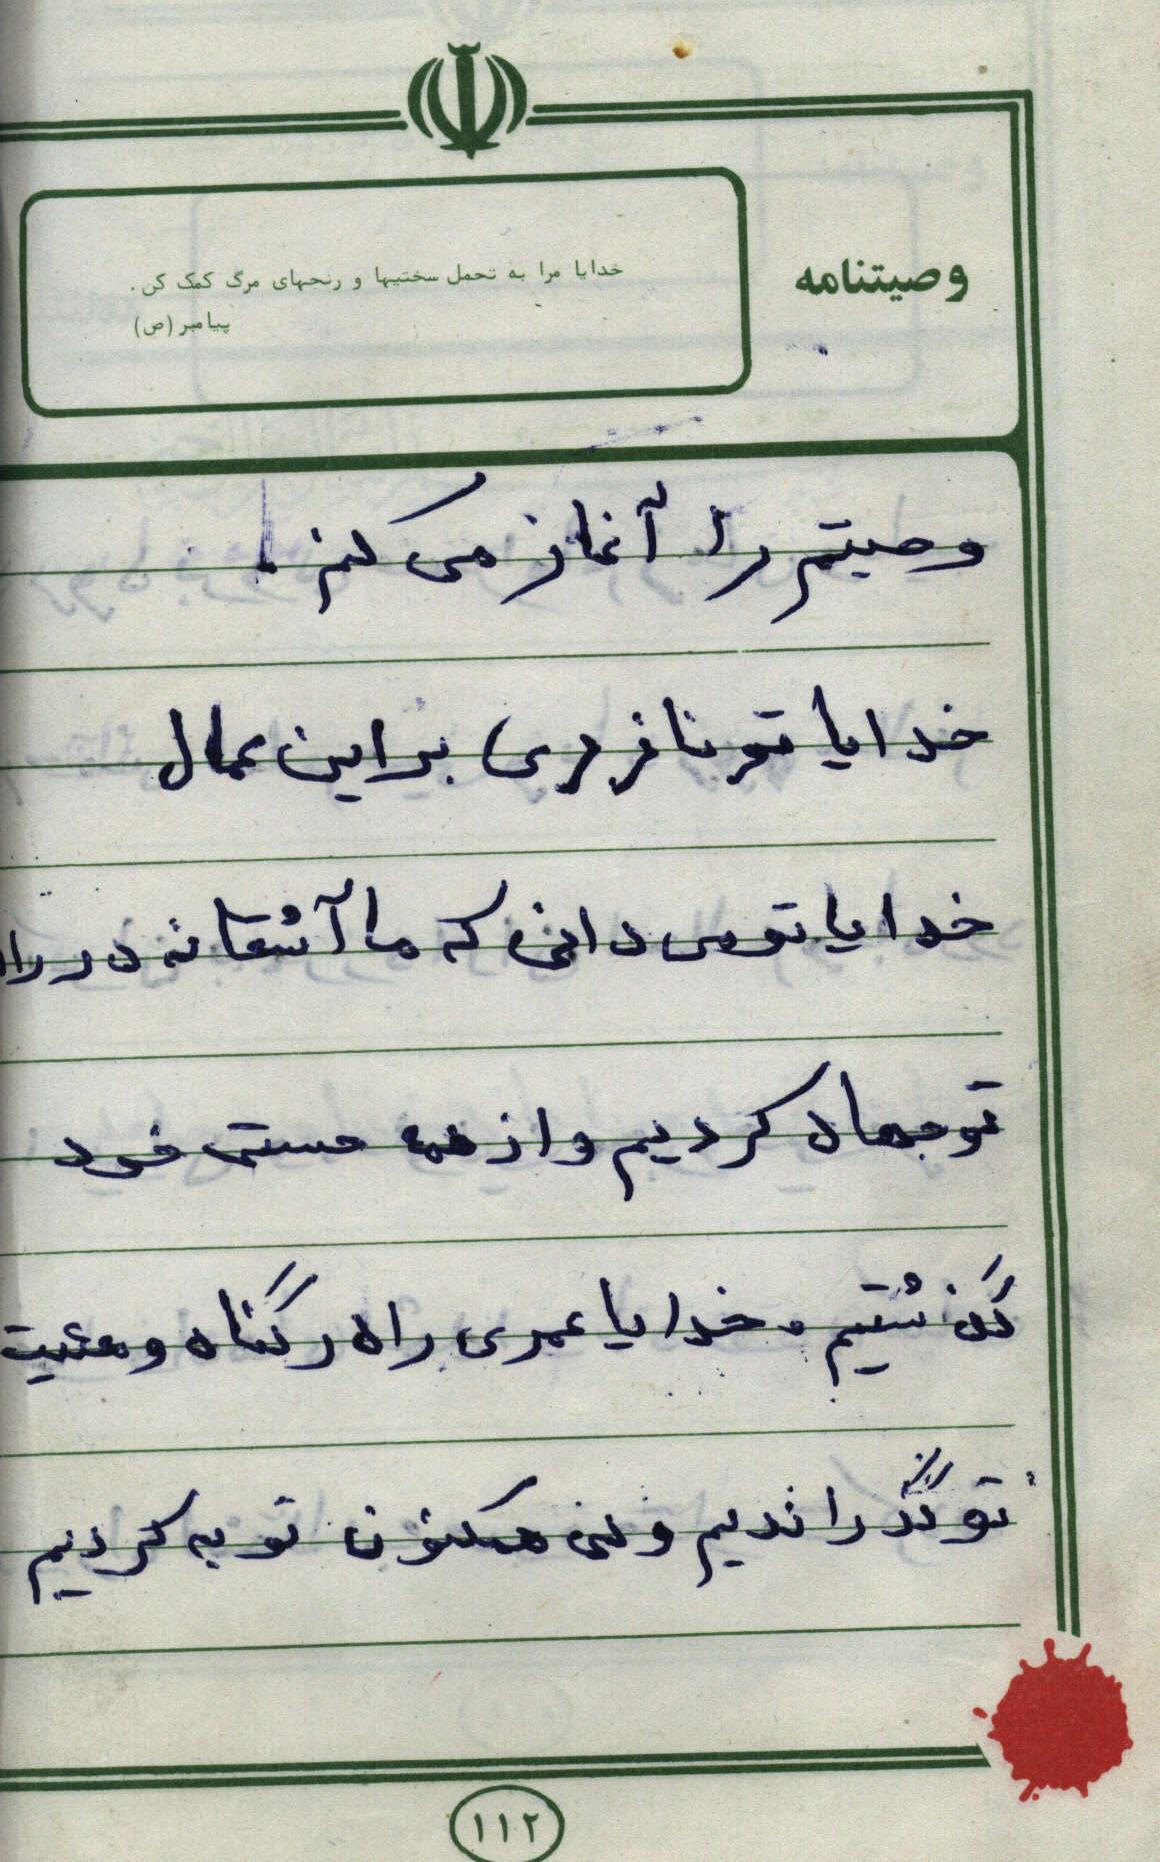 وصیتنامه
خدایا مرا به تحمل سختیها و رنجهای مرگ کمک کن.
پیامبر (ص)
وصیتم را آغاز می کنم.
خدایا تو نافردی براین عمال
خدایا تو می دانی که ما آشقانه در راه
تو جهاد کردیم و از همه هستی خود
گذشتیم. خدایا عمری راه در گناه و معثیت
تو گذراندیم ولی همکنون توبه کردیم
۱۱۲